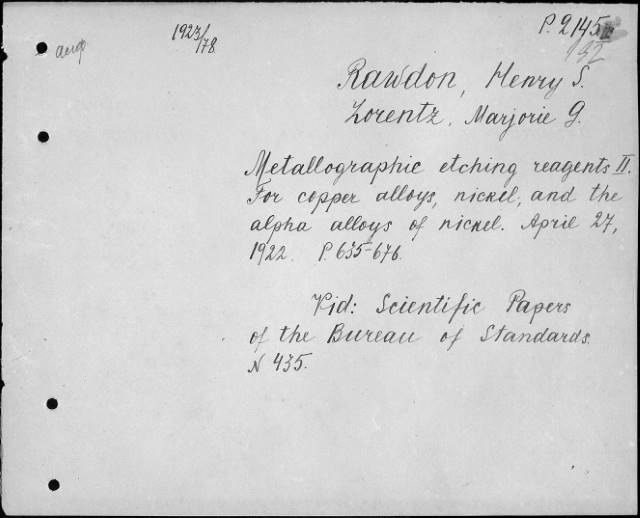 1923/178
P. 2145
Rawdon, Henry S.
Lorentz, Marjorie G.
Metallographic etching reagents II.
For copper alloys, nickel, and the
alpha alloys of nickel. April 27,
1922. P. 635-676.
Kid: Scientific Papers
of the Bureau of Standards.
N 435.